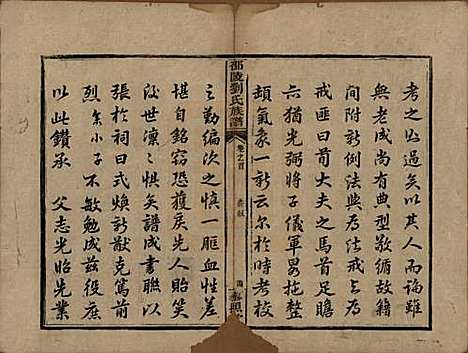 考之凶過矣以其人而論雖
無老成尚有典型敬循故籍
間附新例法其典為法戒其
戒匪曰荀大夫之馬首而瞻
亦猶光弼將子儀軍畧托整
頓氣象一新云尔於時考校
邵陵劉氏族譜
卷之首
之勤編次之慎一脈血性差
堪自銘竊恐獲戾先人貽笑
述世凜之懼矣譜成書聯以
張於祠曰式煥新猷克篤前
烈矣小子不敏勉成茲聯
以此鑽承父志光貽先業